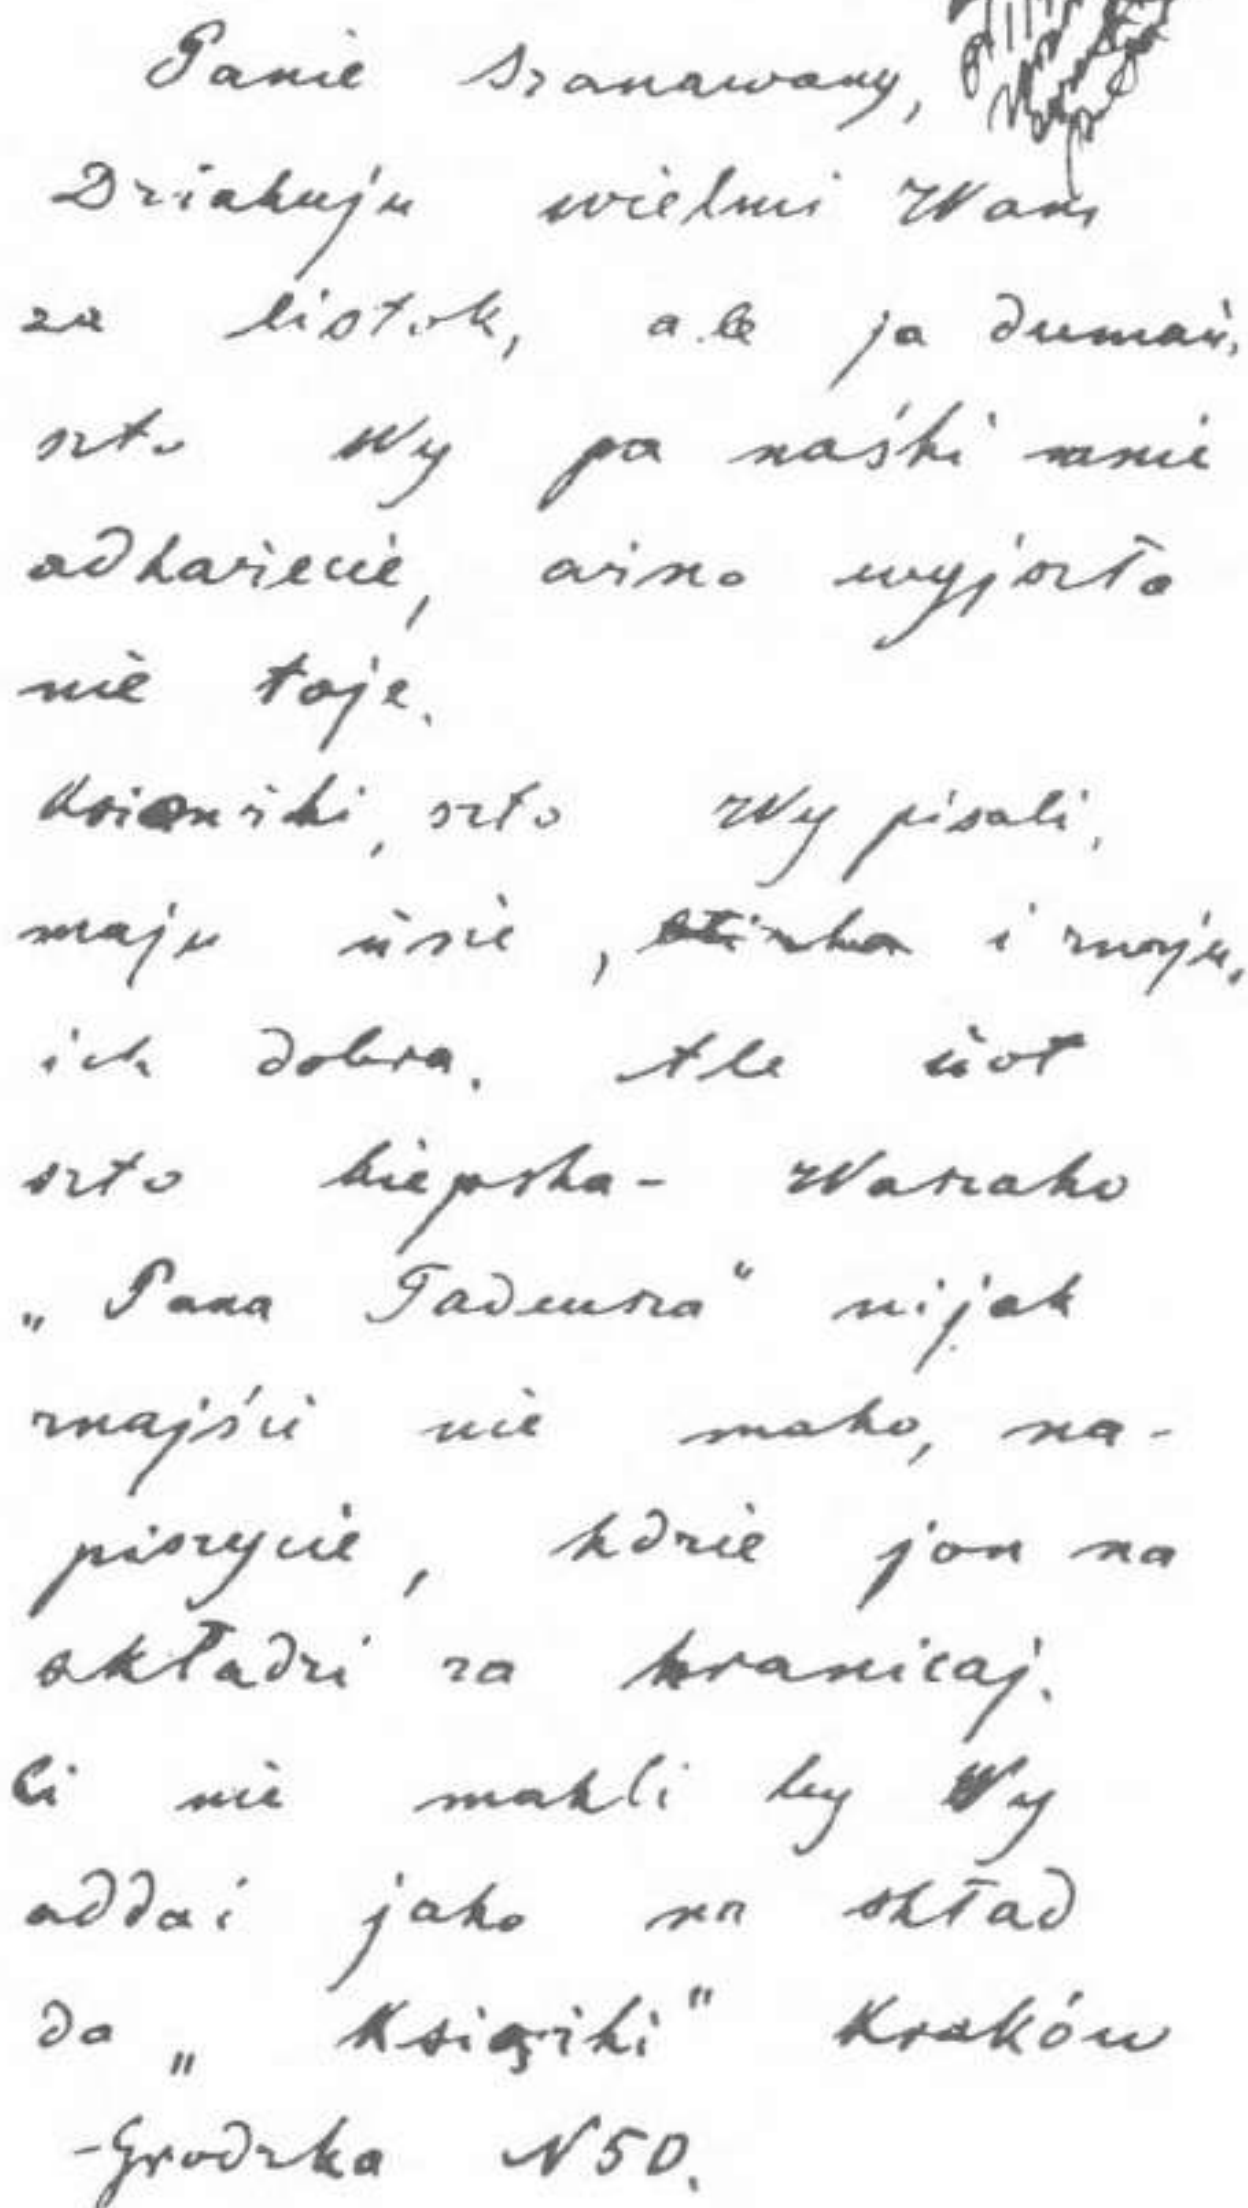 Panie Szanawany,
Dziakuju wielmi Wam
za listok, ale ja dumaŭ,
szto Wy pa naśki mnie
adkażecie, ażno wyjszło
nie toje.
Ksionżki, szto Wy pisali,
maju ŭsie, i znaju,
ich dobra. Ale ŭot
szto kiepska - Waszaho
„Pana Tadeusza" nijak
znajści nie mahu, na-
piszycie, hdzie jon na
składzi za hranicaj.
Ci nie mahli by Wy
addać jaho na skład
da „Książki" Kraków
-Grodzka N 50.